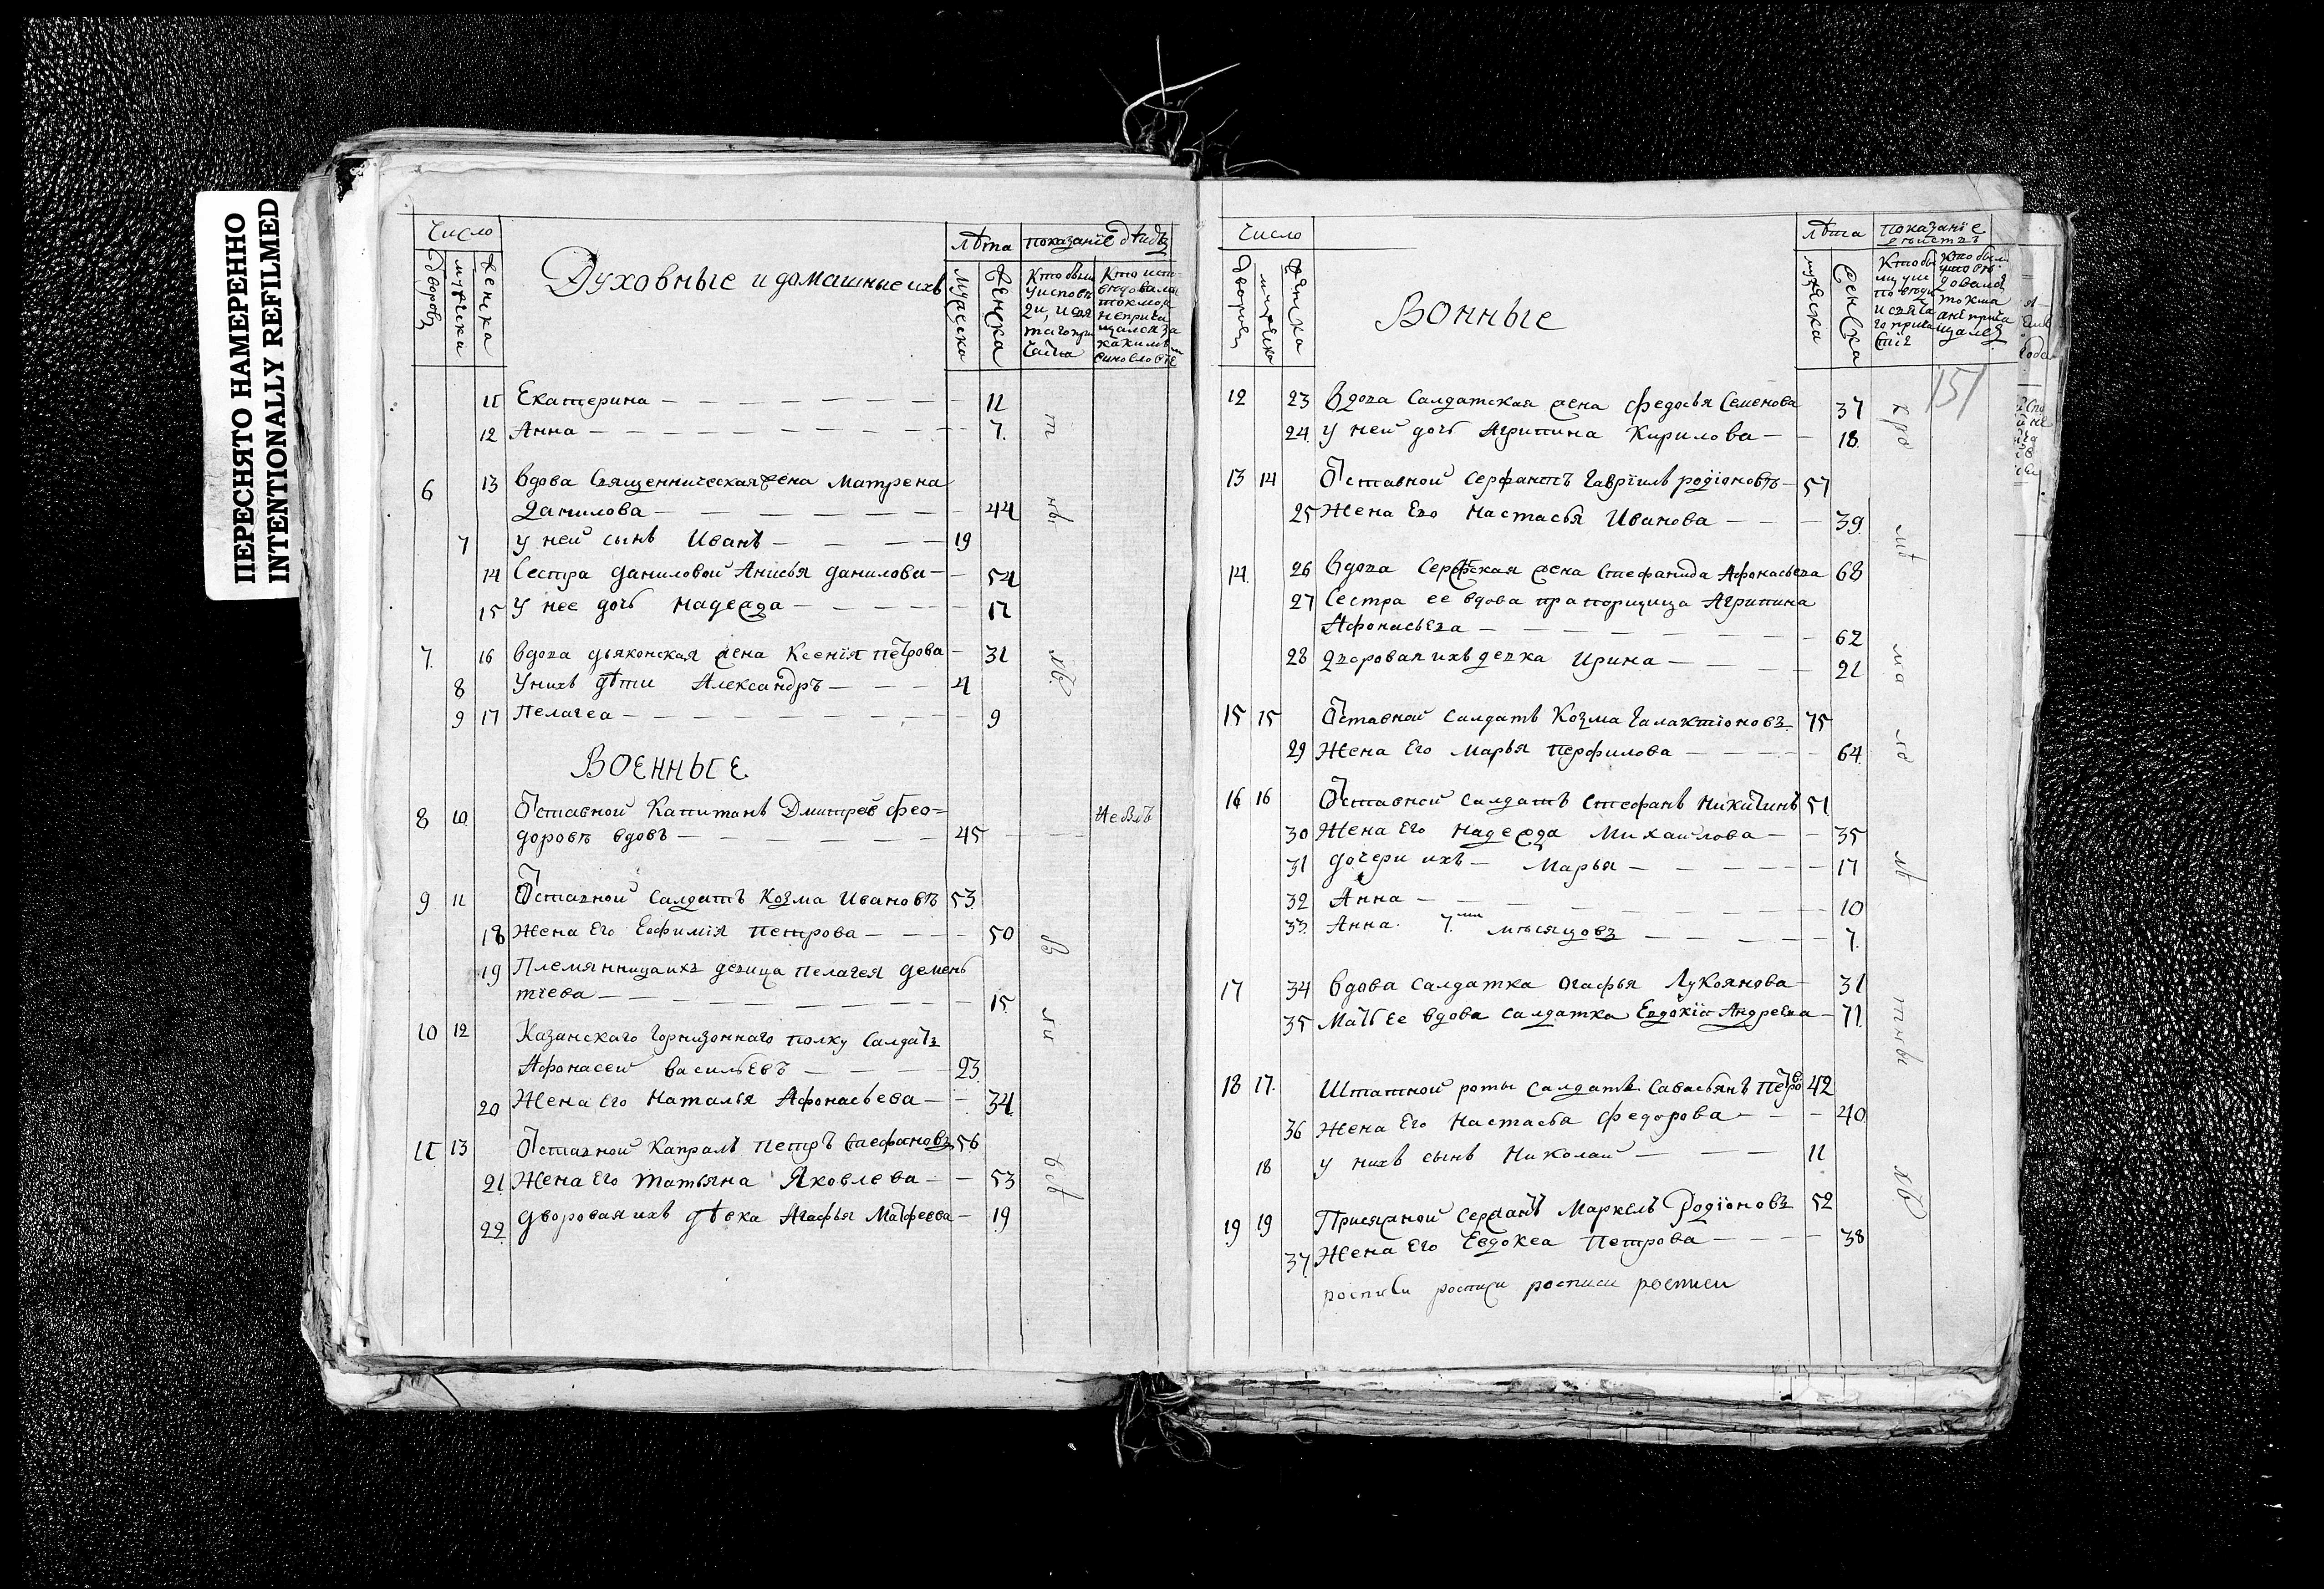 ПЕРЕСНЯТО НАМЕРЕННО
INTENTIONALLY REFILMED
Число
Дворовъ
мужеска
женска
Духовные и домашные ихъ
лѣта
мужеска
женска
показанїе
Кто были
Кто испо
11 Екатерина — 11
12 Анна — 7.
6 13 вдова Священническая жена Матрена
Данилова — 44
7 у ней сынъ Иванъ — 19
14 Сестра даниловой Анисья данилова — 54
15 у нее дочь надежда — 17
7. 16 вдова дьяконская жена Ксенїя петрова — 31
8 У нихъ дѣти Александръ — 4
9 17 Пелагеа — 9
ВОЕННЫЕ
8 10 Отставной Капитанъ Дмитрей Фео-
доровъ вдовъ — 45
9 11 Отставной Салдатъ Козма Ивановъ 53
18 Жена Его Евфимїя петрова — 50
19 Племянница ихъ девица пелагея демень
тїева — 15
10 12 Казанскаго Горнизоннаго полку Салдатъ
Афонасей васильевъ — 23
20 Жена Его Наталья Афонасьева — 34
11 13 Отставной Капралъ петръ Стефановъ 56
21 Жена Его татьяна Яковлева — 53
22 дворовая ихъ дѣвка Агафья Матфеева — 19
Число
мужеска
женска
ВОННЫЕ
лѣта
мужеска
женска
показанїе
151
12 23 Вдова Салдатская жена федосья Семенова 37
24 у ней дочь Агрипина Кирилова — 18
13 14 Отставной сержантъ Гаврїилъ родїоновъ — 57
25 Жена Его Настасья Иванова — 39
14 26 Вдова Сержская жена Стефанида Афонасьева 68
27 Сестра ее вдова прапорщица Агрипина
Афонасьева — 62
28 дворовая ихъ девка Ирина — 21
15 15 Отставной салдатъ Козма Галактїоновъ 75
29 Жена Его Марья перфилова — 64
16 16 Отставной салдатъ Стефанъ никитинъ 51
30 Жена Его надежда Михайлова — 35
31 дочери ихъ — Марья — 17
32 Анна — 10
33 Анна 7.ми мѣсяцовъ — 7.
17 34 Вдова Салдатка Огафья Лукоянова — 31
35 Мать Ее вдова салдатка Евдокїа Андреева — 71
18 17. Штатной роты салдатъ Савастьянъ Петро 42
36 Жена Его Настасья федорова — 40
18 у нихъ сынъ Николай — 11
19 19 Присяжной Сержантъ Маркелъ Родїоновъ 52
37 Жена Его Евдокеа Петрова — 38
росписи росписи росписи росписи